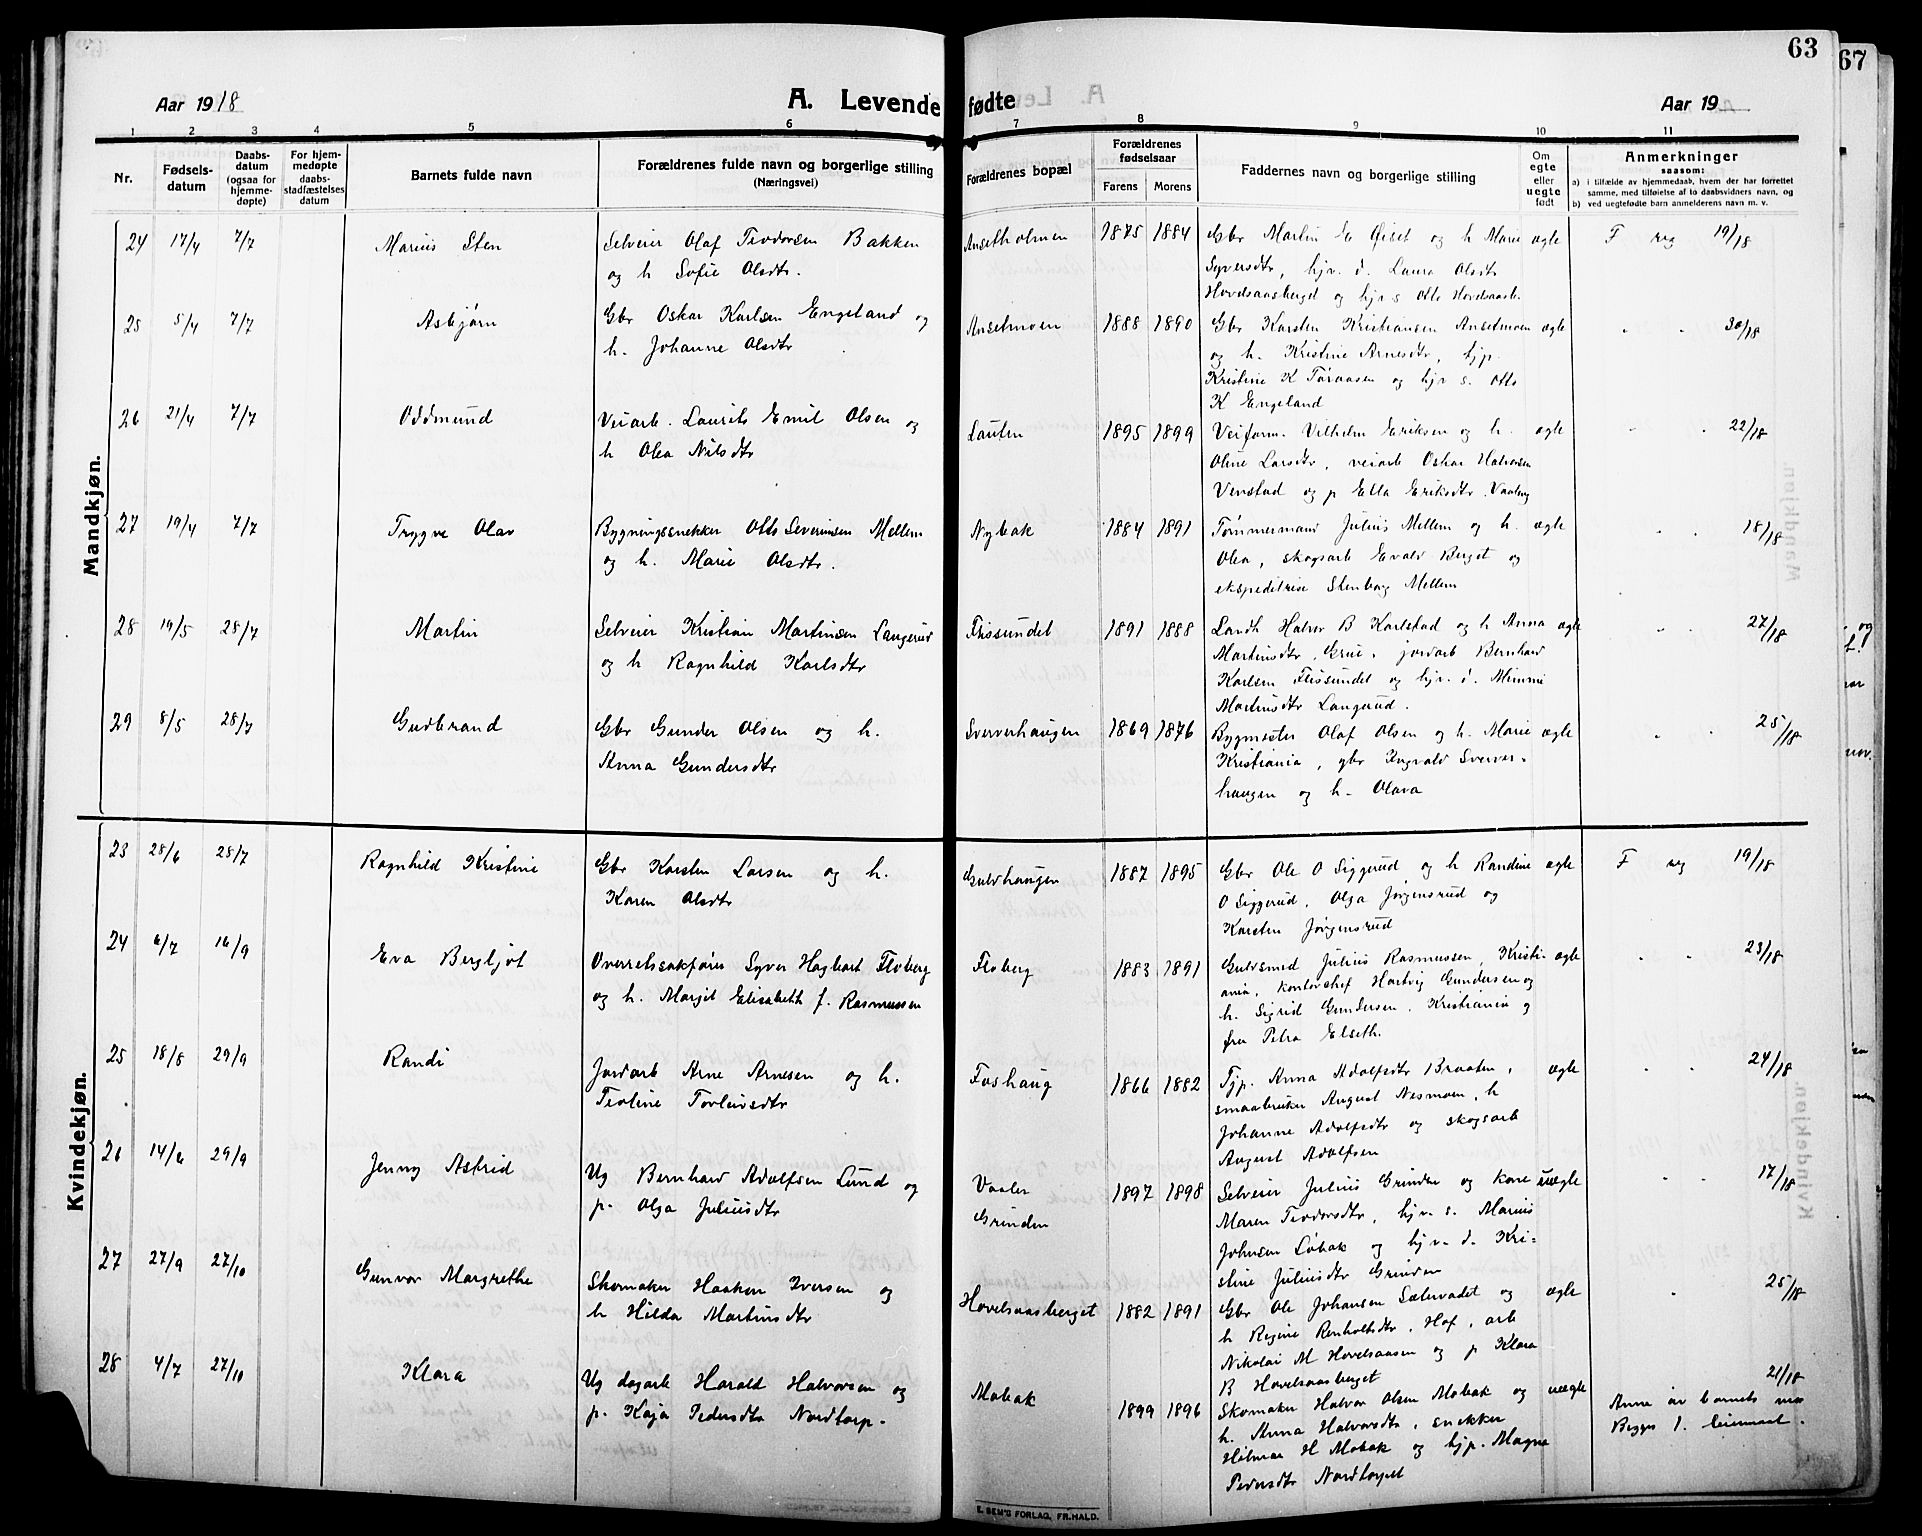 63
67
Aar 1918
A. Levende fødte
Aar 19
1 2 3 4 5 6 7 8 9 10 11
Nr.
Fødsels-
datum
Daabs-
datum
(ogsaa for
hjemme-
døpte)
For hjem-
medøpte
daabs-
stadfæstelses
datum
Barnets fulde navn
Forældrenes fulde navn og borgerlige stilling
(Næringsvei)
Forældrenes bopæl
Forældrenes
fødselsaar
Farens Morens
Faddernes navn og borgerlige stilling
Om
egte
eller
uegte
født
Anmerkninger
saasom:
a) i tilfælde av hjemmedaab, hvem der har forrettet
samme, med tilføielse af to daabsvidners navn, og
b) ved uegtefødte barn anmelderens navn m. v.
Mandkjøn.
24 17/4 7/7 Marius Sten Selveier Olaf Teodorsen Bakken Ansetholmen 1875 1884 Gbr Martin E Øiset og h Marie egte F reg 19/18
og h Sofie Olsdtr. Syversdtr, hjv. d. Laura Olsdtr
Hovelsaasberget og hjv s Otto Hovelsaasb.
25 5/4 7/7 Asbjørn Gbr Oskar Karlsen Engeland og Ansetmoen 1888 1890 Gbr Karsten Kristiansen Ansetmoen egte " " 30/18
h. Johanne Olsdtr og h. Kristine Arnesdtr, hjp.
Kristine K Tøraasen og hjv s. Otto
K Engeland
26 21/4 7/7 Oddmund Veiarb. Laurits Emil Olsen og Lauten 1895 1899 Veiform. Vilhelm Eriksen og h. egte " " 22/18
h Olea Nilsdtr Oline Larsdtr, veiarb Oskar Halvorsen
Venstad og p Ella Eriksdtr. Vaaberg
27 19/4 7/7 Trygve Olav Bygningssnekker Otto Severinsen Mellem Nybak 1884 1891 Tømmermand Julius Mellem og h. egte " " 18/18
og h. Marie Olsdtr. Olea, skogsarb Evald Berget og
ekspeditrise Stenborg Mellem
28 19/5 28/7 Martin Selveier Kristian Martinsen Langerud Flissundet 1891 1888 Landh Halvor B Karlstad og h Anna egte " " 27/18
og h Ragnhild Karlsdtr Martinsdtr, Grue, jordarb Bernhard
Karlsen Flissundet og hjv. d. Mimmi
Martinsdtr Langerud.
29 8/5 28/7 Gudbrand Gbr Gunder Olsen og h. Sververhaugen 1869 1876 Bygmester Olaf Olsen og h. Marie egte " " 25/18
Anna Gundersdtr Kristiania, gbr Ingvald Sverver-
haugen og h. Olava
Kvindekjøn.
23 28/6 28/7 Ragnhild Kristine Gbr Karsten Larsen og h. Gulvhaugen 1887 1895 Gbr Ole O Siggerud og h Randine egte F reg 19/18
Karen Olsdtr O Siggerud, Olga Jørgensrud og
Karsten Jørgensrud
24 6/7 16/9 Eva Bergljot Overretssakfører Syver Hagbart Floberg Floberg 1883 1891 Gulvsmed Julius Rasmussen, Kristi- egte " " 23/18
og h. Margit Elisabeth f. Rasmussen ania, kontorchef Hartvig Gundersen og
h. Sigrid Gundersen, Kristiania og
fru Petra Elseth.
25 18/8 29/9 Randi Jordarb Arne Arnesen og h. Foshaug 1866 1882 Tjp. Anna Adolfsdtr Braaten, egte " " 24/18
Teoline Torleivsdtr smaabruker August Nesmoen, h
Johanne Adolfsdtr og skogsarb
August Adolfsen
26 14/6 29/9 Jenny Astrid Ug Bernhard Adolfsen Lund og Vaaler 1897 1898 Selveier Julius Grinden og kone uegte " " 17/18
p. Olga Juliusdtr Grinden Maren Teodorsdtr, hjv. s. Marius
Johnsen Løbak og hjv. d. Kri-
stine Juliusdtr Grinden
27 27/9 27/10 Gunvor Margrethe Skomaker Haaken Iversen og Hovelsaasberget 1882 1891 Gbr Ole Johansen Sætervadet og egte " 25/18
h Hilda Martinsdtr h Regine Renholtsdtr, Hof, arb
Nikolai M Hovelsaasen og p Klara
B Hovelsaasberget
28 4/7 27/10 Klara Ug dagarb Harald Halvorsen og Mobak 1899 1896 Skomaker Halvor Olsen Mobak og uegte 21/18
p. Kaja Pedersdtr Nordtorp. h. Anna Halvorsdtr, snekker Anm av barnets mor
Hilmar H Mobak og hjp. Magna Begges 1. leiermaal.
Pedersdtr Nordtorpet
E. SEM'S FORLAG, FR.HALD.